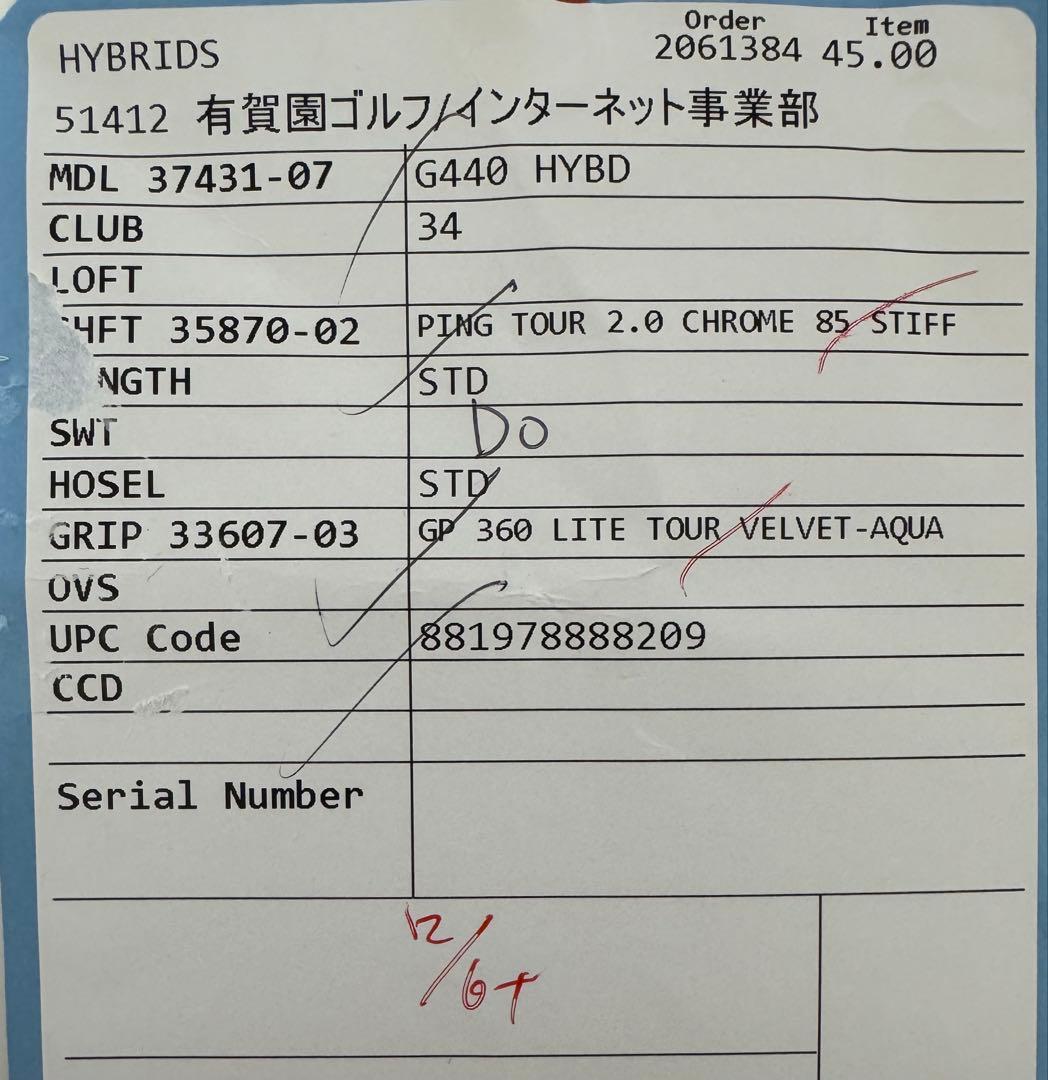 Order Item
HYBRIDS 2061384 45.00
51412 有賀園ゴルフ/インターネット事業部
MDL 37431-07 G440 HYBD
CLUB 34
LOFT
HFT 35870-02 PING TOUR 2.0 CHROME 85 STIFF
NGTH STD
SWT D0
HOSEL STD
GRIP 33607-03 GP 360 LITE TOUR VELVET-AQUA
OVS
UPC Code 881978888209
CCD
Serial Number
12/6